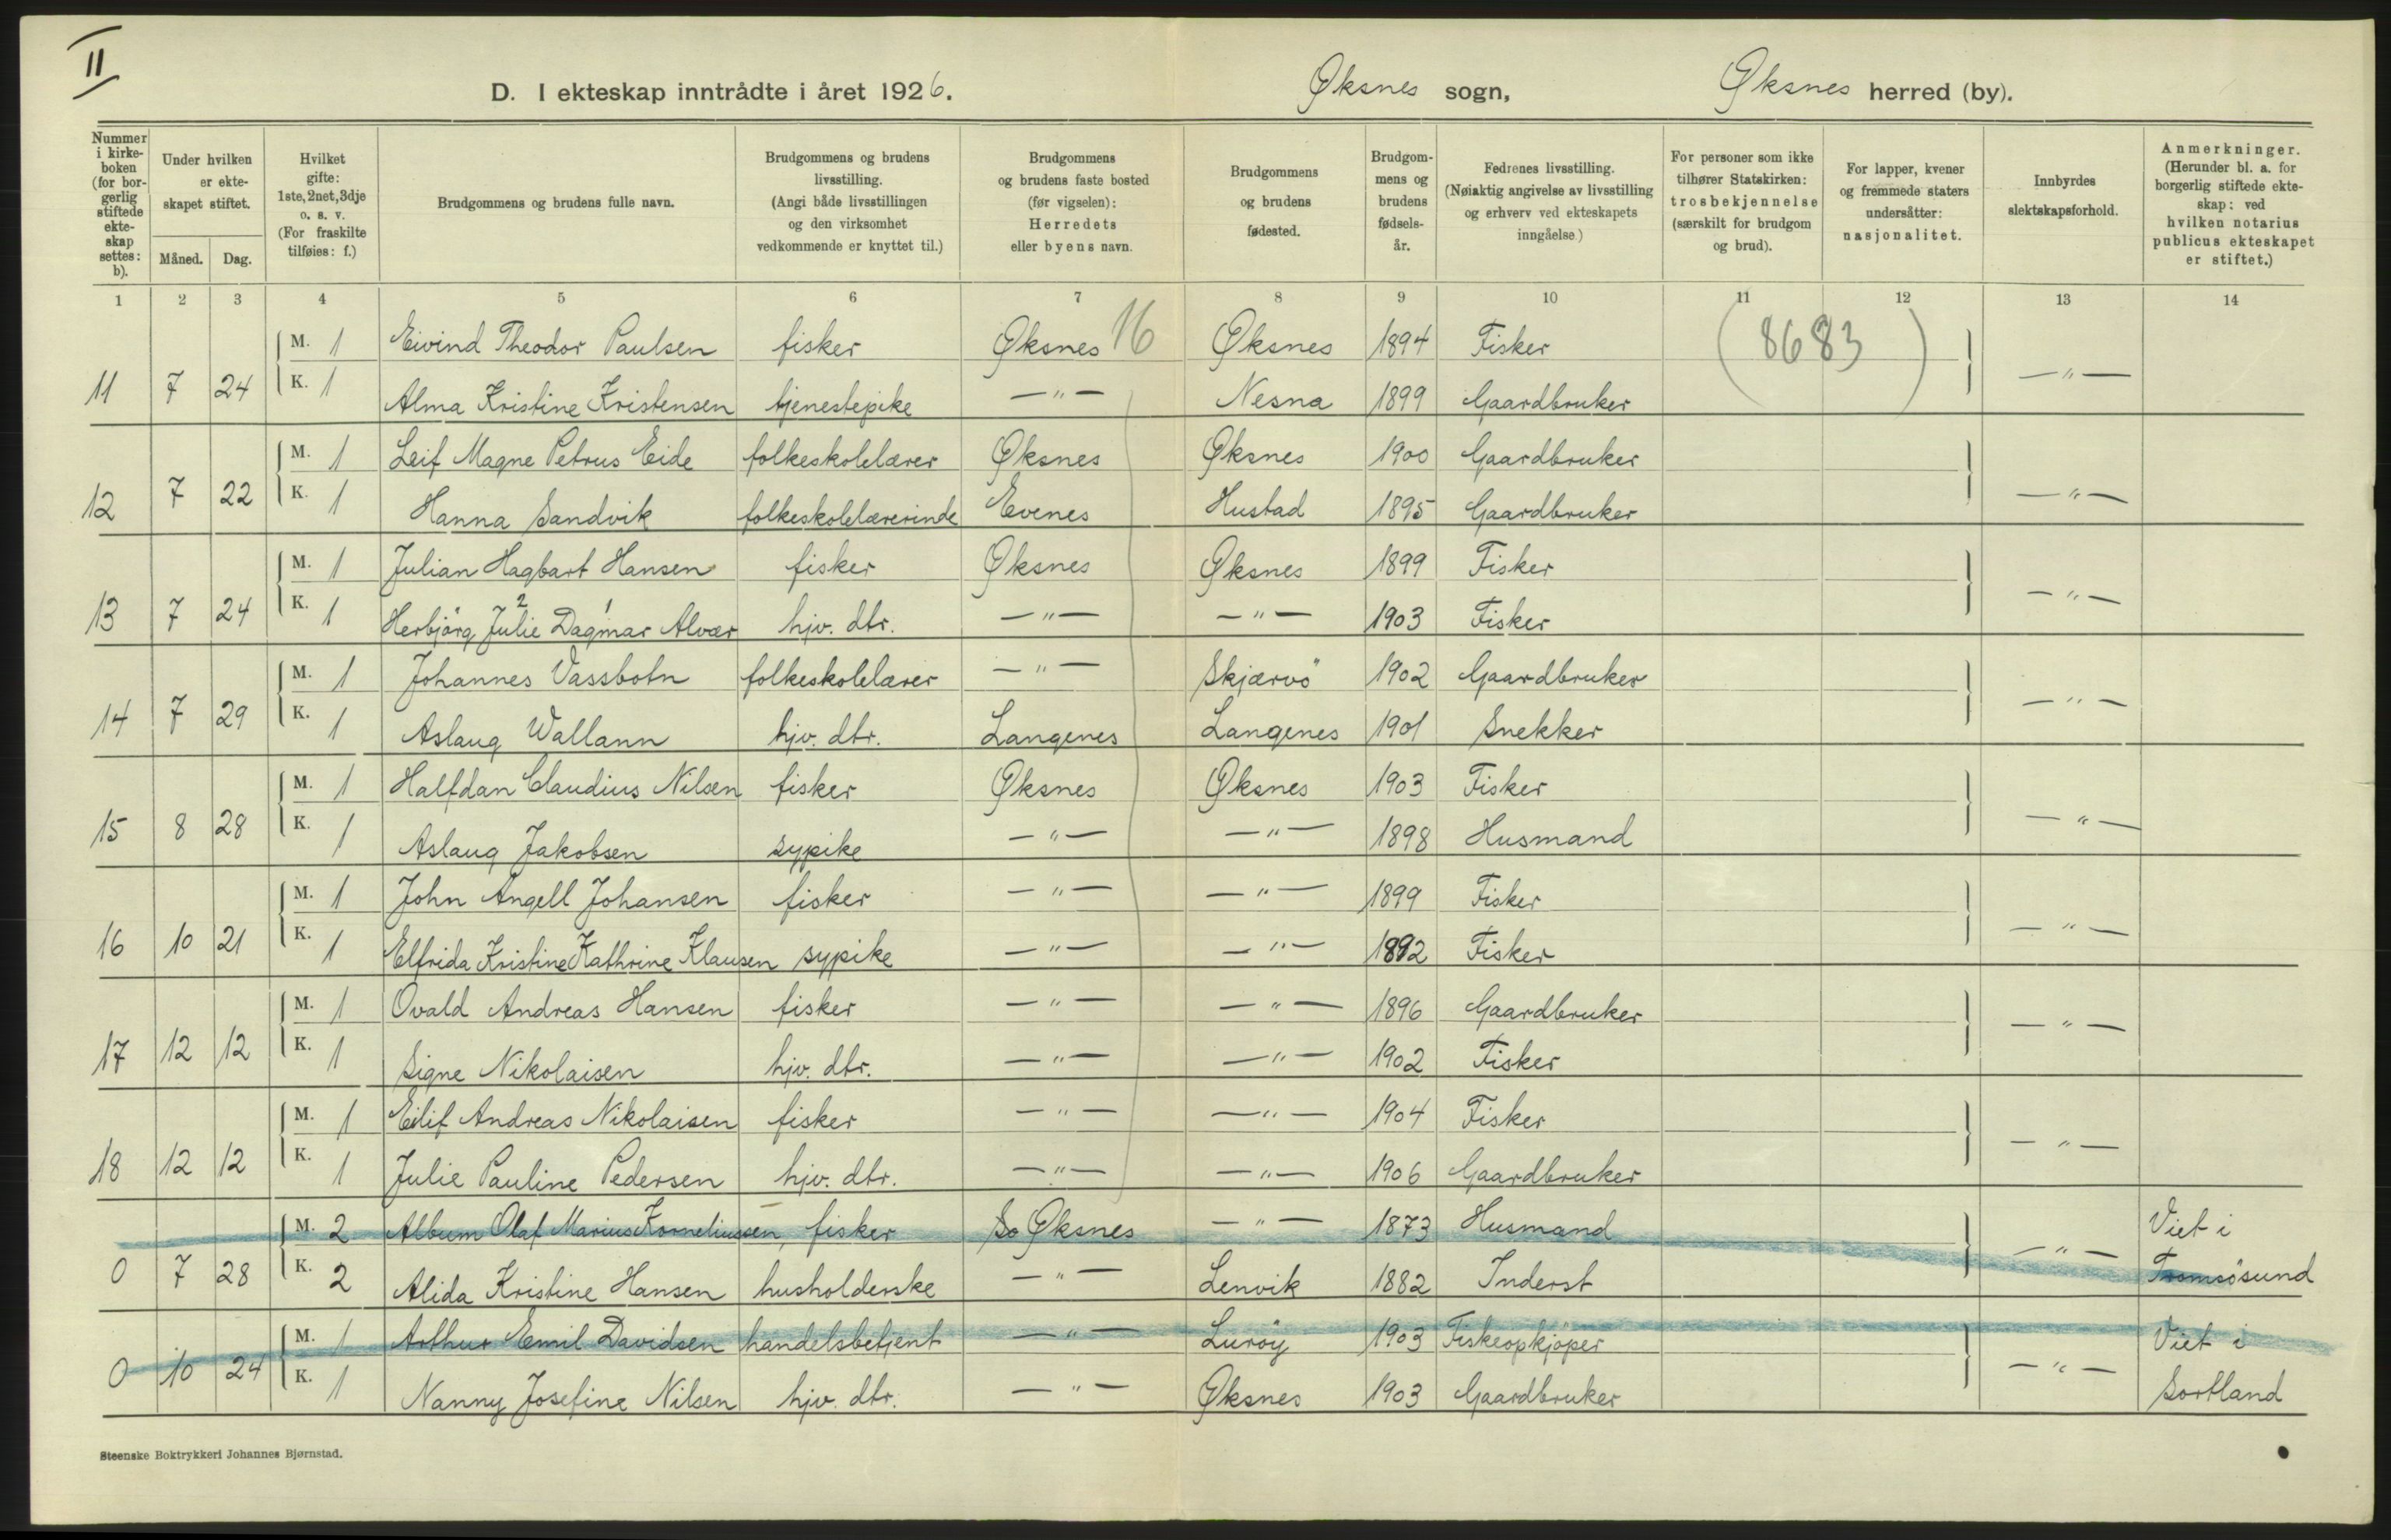 II
D. I ekteskap inntrådte i året 1926. Øksnes sogn, Øksnes herred (by).
Nummer i kirkeboken (for borgerlig stiftede ekteskap settes: b).
Under hvilken er ekteskapet stiftet.
Måned. Dag.
Hvilket gifte: 1ste, 2net, 3dje o. s. v. (For fraskilte tilføies: f.)
Brudgommens og brudens fulle navn.
Brudgommens og brudens livsstilling. (Angi både livsstillingen og den virksomhet vedkommende er knyttet til.)
Brudgommens og brudens faste bosted (før vigselen): Herredets eller byens navn.
Brudgommens og brudens fødested.
Brudgommens og brudens fødselsår.
Fedrenes livsstilling. (Nøiaktig angivelse av livsstilling og erhverv ved ekteskapets inngåelse.)
For personer som ikke tilhører Statskirken: trosbekjennelse (særskilt for brudgom og brud).
For lapper, kvener og fremmede staters undersåtter: nasjonalitet.
Innbyrdes slektskapsforhold.
Anmerkninger. (Herunder bl. a. for borgerlig stiftede ekteskap: ved hvilken notarius publicus ekteskapet er stiftet.)
1 2 3 4 5 6 7 8 9 10 11 12 13 14
M. 1 Eivind Theodor Paulsen fisker Øksnes 16 Øksnes 1894 Fisker (8683)
11 7 24 K. 1 Alma Kristine Kristensen tjenestepike —"— Nesna 1899 Gaardbruker —"—
M. 1 Leif Magne Petrus Eide folkeskolelærer Øksnes Øksnes 1900 Gaardbruker
12 7 22 K. 1 Hanna Sandvik folkeskolelærerinde Evenes Hustad 1895 Gaardbruker —"—
M. 1 Julian Hagbart Hansen fisker Øksnes Øksnes 1899 Fisker
13 7 24 K. 1 Herbjörg Julie 2 Dagmar 1 Alvær hjv. dtr. —"— —"— 1903 Fisker —"—
M. 1 Johannes Vassbotn folkeskolelærer —"— Skjærvö 1902 Gaardbruker
14 7 29 K. 1 Aslaug Wallann hjv. dtr. Langenes Langenes 1901 Snekker —"—
M. 1 Halfdan Claudius Nilsen fisker Øksnes Øksnes 1903 Fisker
15 8 28 K. 1 Aslaug Jakobsen sypike —"— —"— 1898 Husmand —"—
M. 1 John Angell Johansen fisker —"— —"— 1899 Fisker
16 10 21 K. 1 Elfrida Kristine Kathrine Klausen sypike —"— —"— 1892 Fisker —"—
M. 1 Ovald Andreas Hansen fisker —"— —"— 1896 Gaardbruker
17 12 12 K. 1 Signe Nikolaisen hjv. dtr. —"— —"— 1902 Fisker —"—
M. 1 Eilif Andreas Nikolaisen fisker —"— —"— 1904 Fisker
18 12 12 K. 1 Julie Pauline Pedersen hjv. dtr. —"— —"— 1906 Gaardbruker —"—
M. 2 Album Olaf Marius Korneliussen, fisker So Øksnes —"— 1873 Husmand Viet i
0 7 28 K. 2 Alida Kristine Hansen husholderske —"— Lenvik 1882 Inderst —"— Tromsösund
M. 1 Arthur Emil Davidsen handelsbetjent —"— Luröy 1903 Fiskeopkjöper Viet i
0 10 24 K. 1 Nanny Josefine Nilsen hjv. dtr. —"— Øksnes 1903 Gaardbruker —"— Sortland
Steenske Boktrykkeri Johannes Bjørnstad.